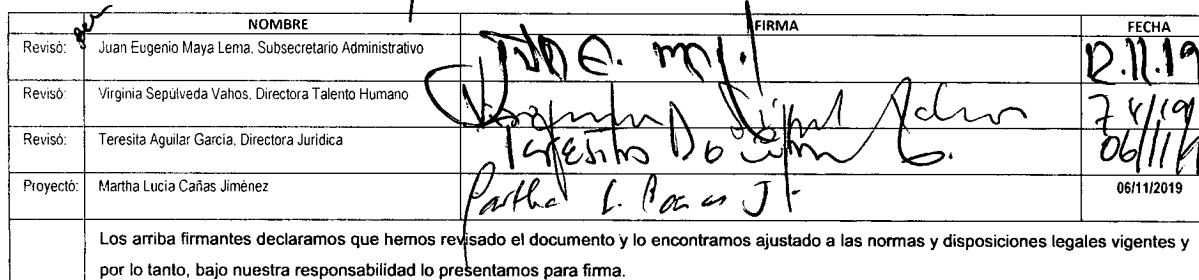 NOMBRE FIRMA FECHA
Revisó: Juan Eugenio Maya Lema, Subsecretario Administrativo 12.11.19
Revisó: Virginia Sepúlveda Vahos, Directora Talento Humano
Revisó: Teresita Aguilar García, Directora Jurídica 06/11/
Proyectó: Martha Lucía Cañas Jiménez 06/11/2019
Los arriba firmantes declaramos que hemos revisado el documento y lo encontramos ajustado a las normas y disposiciones legales vigentes y
por lo tanto, bajo nuestra responsabilidad lo presentamos para firma.